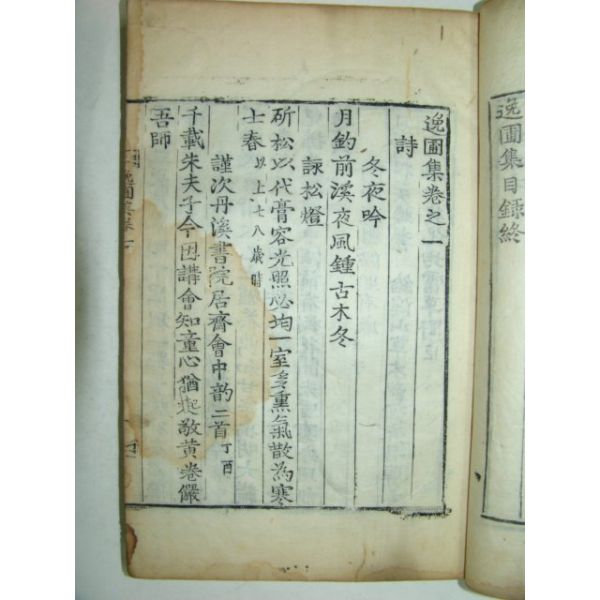 逸圃集目錄終
逸圃集卷之一
詩
冬夜吟
月釣前溪夜風鍾古木冬
詠松燈
斫松以代膏容光照必均一室多熏氣散為寒
士春以上七八歲時
謹次丹溪書院居齊會中韵二首丁酉
千載朱夫子今因講會知童心猶起敬黃卷儼
吾師
逸圃集卷一